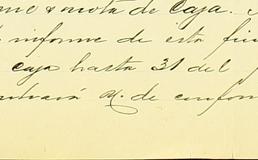 me & nota de Caja.
informe de este fin
caja hasta 31 del
de confor